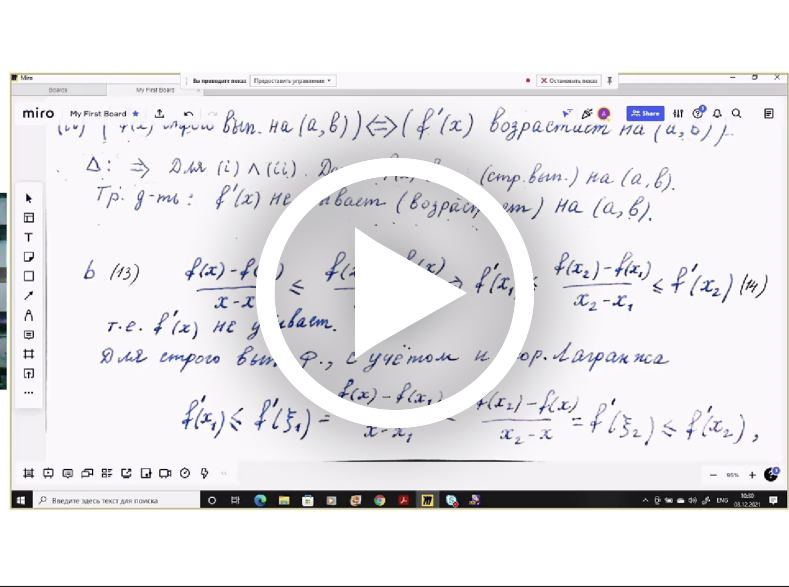 Miro
Вы проводите показ Предоставить управление Остановить показ
Boards My First Board
miro My First Board Share
на (a, b)) <=> (f'(x) возрастает на (a, b)).
Δ: => Для (i) ∧ (ii). (стр. вып.) на (a, b).
Тр. д-ть: f'(x) не убывает (возрастает) на (a, b).
b (13) ≤ f'(x₁) ≤ (f(x₂) - f(x₁))/(x₂ - x₁) ≤ f'(x₂) (14)
т.е. f'(x) не убывает.
Для строго вып. ф., с учётом Лагранжа
f'(x₁) ≤ f'(ξ₁) = (f(x) - f(x₁))/(x - x₁) (f(x₂) - f(x))/(x₂ - x) = f'(ξ₂) ≤ f'(x₂),
95%
Введите здесь текст для поиска ENG 10:50
08.12.2021